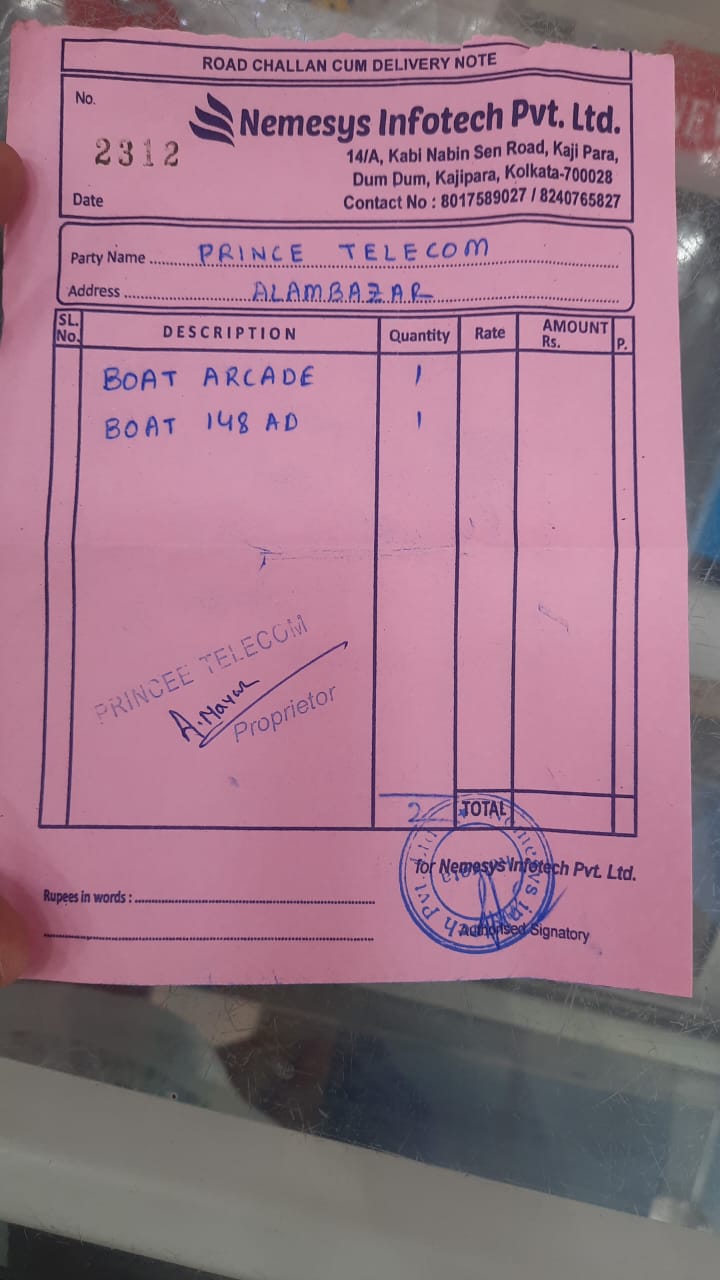 ROAD CHALLAN CUM DELIVERY NOTE
No.
2312
Nemesys Infotech Pvt. Ltd.
14/A, Kabi Nabin Sen Road, Kaji Para,
Dum Dum, Kajipara, Kolkata-700028
Date
Contact No : 8017589027 / 8240765827
Party Name PRINCE TELECOM
Address ALAMBAZAR
SL. No. DESCRIPTION Quantity Rate AMOUNT Rs. P.
BOAT ARCADE 1
BOAT 148 AD 1
PRINCEE TELECOM
A. Mayar
Proprietor
2 TOTAL
for Nemesys Infotech Pvt. Ltd.
Rupees in words :
Authorised Signatory